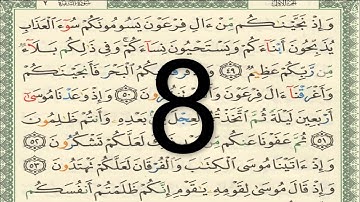 وَإِذْ نَجَّيْنَٰكُم مِّنْ ءَالِ فِرْعَوْنَ يَسُومُونَكُمْ سُوٓءَ ٱلْعَذَابِ
يُذَبِّحُونَ أَبْنَآءَكُمْ وَيَسْتَحْيُونَ نِسَآءَكُمْ وَفِى ذَٰلِكُم بَلَآءٌ
مِّن رَّبِّكُمْ عَظِيمٌ ٤٩ بِكُمُ ٱلْبَحْرَ فَأَنجَيْنَٰكُمْ
وَأَغْرَقْنَآ ءَالَ فِرْعَوْنَ ٥٠ وَإِذْ وَٰعَدْنَا مُوسَىٰٓ
أَرْبَعِينَ لَيْلَةً ثُمَّ ٱتَّخَذْتُمُ ٱلْعِجْلَ بَعْدِهِۦ وَأَنتُمْ ظَٰلِمُونَ
٥١ ثُمَّ عَفَوْنَا عَنكُم ذَٰلِكَ لَعَلَّكُمْ تَشْكُرُونَ ٥٢
وَإِذْ ءَاتَيْنَا مُوسَى ٱلْكِتَٰبَ وَٱلْفُرْقَانَ لَعَلَّكُمْ تَهْتَدُونَ ٥٣
وَإِذْ قَالَ مُوسَىٰ لِقَوْمِهِۦ يَٰقَوْمِ إِنَّكُمْ ظَلَمْتُمْ أَنفُسَكُم
8